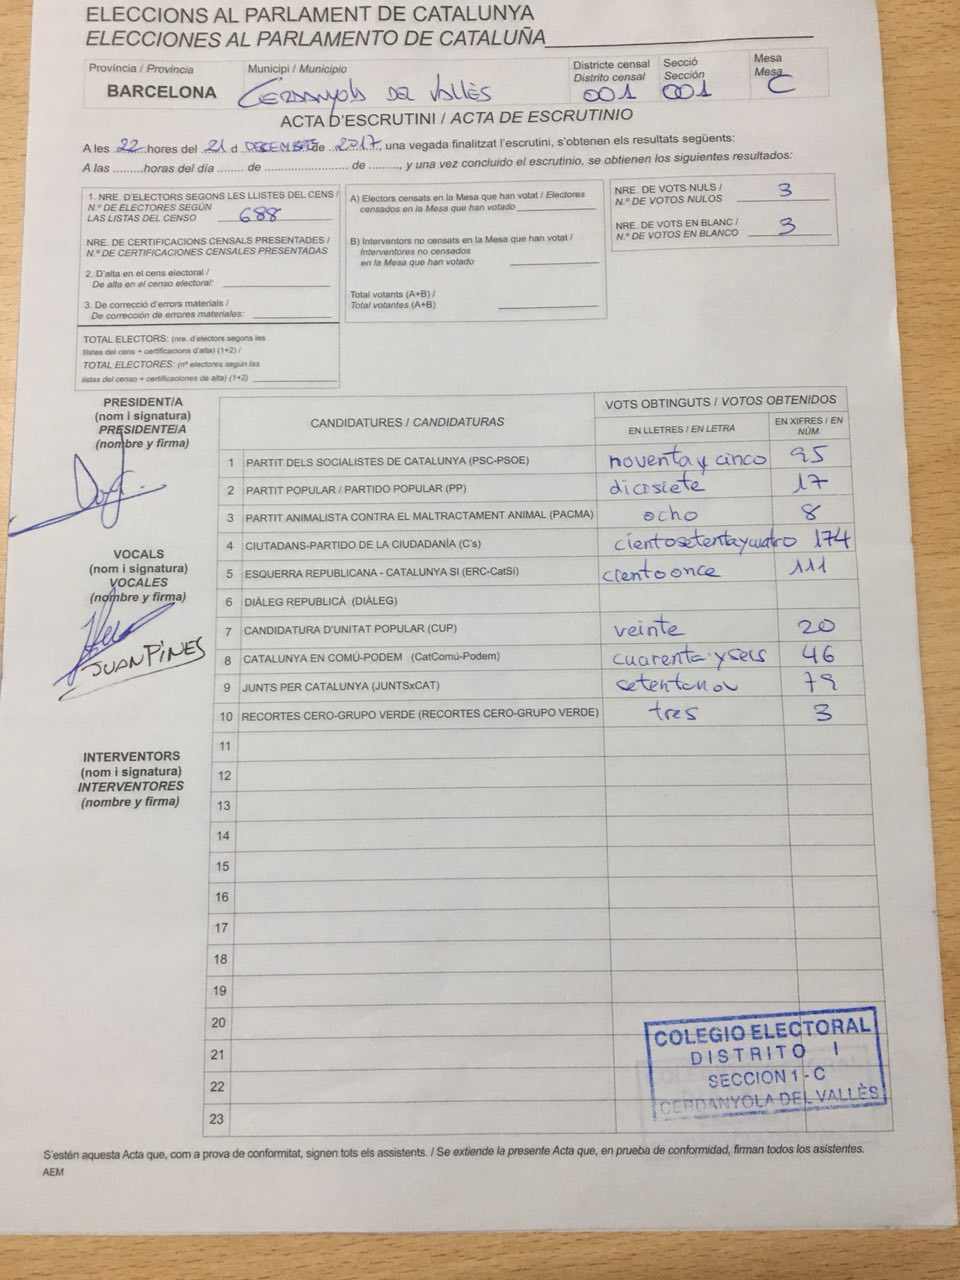 ELECCIONS AL PARLAMENT DE CATALUNYA
ELECCIONES AL PARLAMENTO DE CATALUÑA
Província / Provincia
BARCELONA
Municipi / Municipio
CERDANYOLA DEL VALLÈS
Districte censal
Distrito censal
001
Secció
Sección
001
Mesa
Mesa
C
ACTA D'ESCRUTINI / ACTA DE ESCRUTINIO
A les 22 hores del 21 d DESEMBRE de 2017, una vegada finalitzat l'escrutini, s'obtenen els resultats següents:
A las .........horas del día ..... de ........................ de ........., y una vez concluido el escrutinio, se obtienen los siguientes resultados:
1. NRE. D'ELECTORS SEGONS LES LLISTES DEL CENS /
N.º DE ELECTORES SEGÚN
LAS LISTAS DEL CENSO 688
NRE. DE CERTIFICACIONS CENSALS PRESENTADES /
N.º DE CERTIFICACIONES CENSALES PRESENTADAS
2. D'alta en el cens electoral /
De alta en el censo electoral:
3. De correcció d'errors materials /
De corrección de errores materiales:
TOTAL ELECTORS: (nre. d'electors segons les
llistes del cens + certificacions d'alta) (1+2) /
TOTAL ELECTORES: (nº electores según las
listas del censo + certificaciones de alta) (1+2)
A) Electors censats en la Mesa que han votat / Electores
censados en la Mesa que han votado
B) Interventors no censats en la Mesa que han votat /
Interventores no censados
en la Mesa que han votado
Total votants (A+B) /
Total votantes (A+B)
NRE. DE VOTS NULS /
N.º DE VOTOS NULOS 3
NRE. DE VOTS EN BLANC /
N.º DE VOTOS EN BLANCO 3
PRESIDENT/A
(nom i signatura)
PRESIDENTE/A
(nombre y firma)
VOCALS
(nom i signatura)
VOCALES
(nombre y firma)
JUAN PINES
INTERVENTORS
(nom i signatura)
INTERVENTORES
(nombre y firma)
CANDIDATURES / CANDIDATURAS
VOTS OBTINGUTS / VOTOS OBTENIDOS
EN LLETRES / EN LETRA
EN XIFRES / EN NÚM.
1 PARTIT DELS SOCIALISTES DE CATALUNYA (PSC-PSOE) noventa y cinco 95
2 PARTIT POPULAR / PARTIDO POPULAR (PP) diecisiete 17
3 PARTIT ANIMALISTA CONTRA EL MALTRACTAMENT ANIMAL (PACMA) ocho 8
4 CIUTADANS-PARTIDO DE LA CIUDADANÍA (C's) ciento setenta y cuatro 174
5 ESQUERRA REPUBLICANA - CATALUNYA SI (ERC-CatSí) ciento once 111
6 DIÀLEG REPUBLICÀ (DIÀLEG)
7 CANDIDATURA D'UNITAT POPULAR (CUP) veinte 20
8 CATALUNYA EN COMÚ-PODEM (CatComú-Podem) cuarenta y seis 46
9 JUNTS PER CATALUNYA (JUNTSxCAT) 79
10 RECORTES CERO-GRUPO VERDE (RECORTES CERO-GRUPO VERDE) tres 3
11
12
13
14
15
16
17
18
19
20
21
22
23
COLEGIO ELECTORAL
DISTRITO I
SECCION 1 - C
CERDANYOLA DEL VALLÈS
S'estén aquesta Acta que, com a prova de conformitat, signen tots els assistents. / Se extiende la presente Acta que, en prueba de conformidad, firman todos los asistentes.
AEM